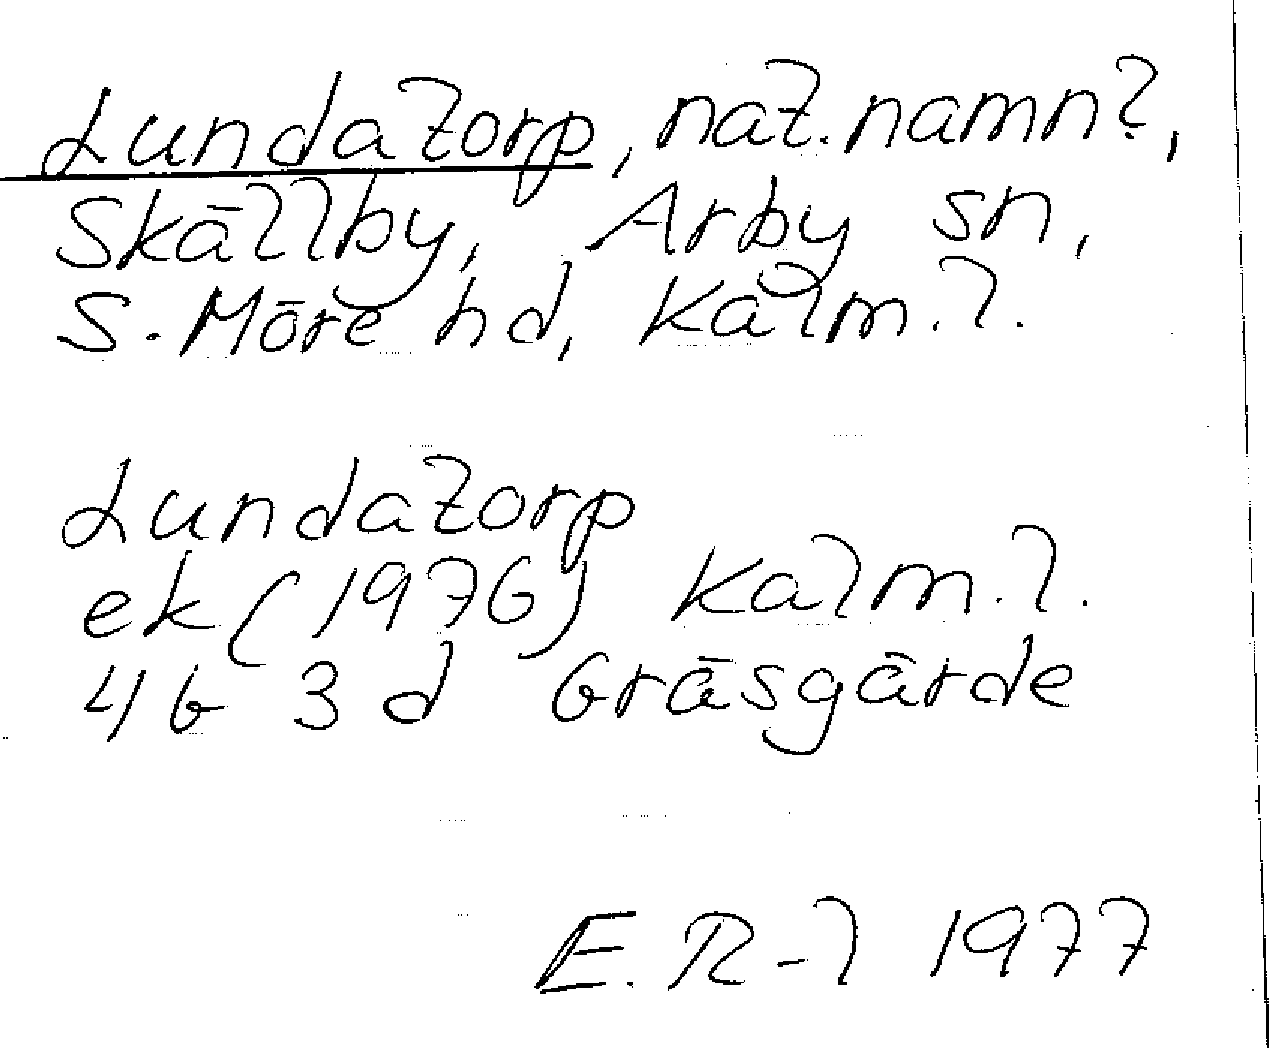 Lundatorp, nat.namn?,
Skällby, Arby sn,
S. Möre hd, Kalm. l.
Lundatorp
ek (1976) Kalm. l.
4G 3d Gräsgärde
E. R-l 1977